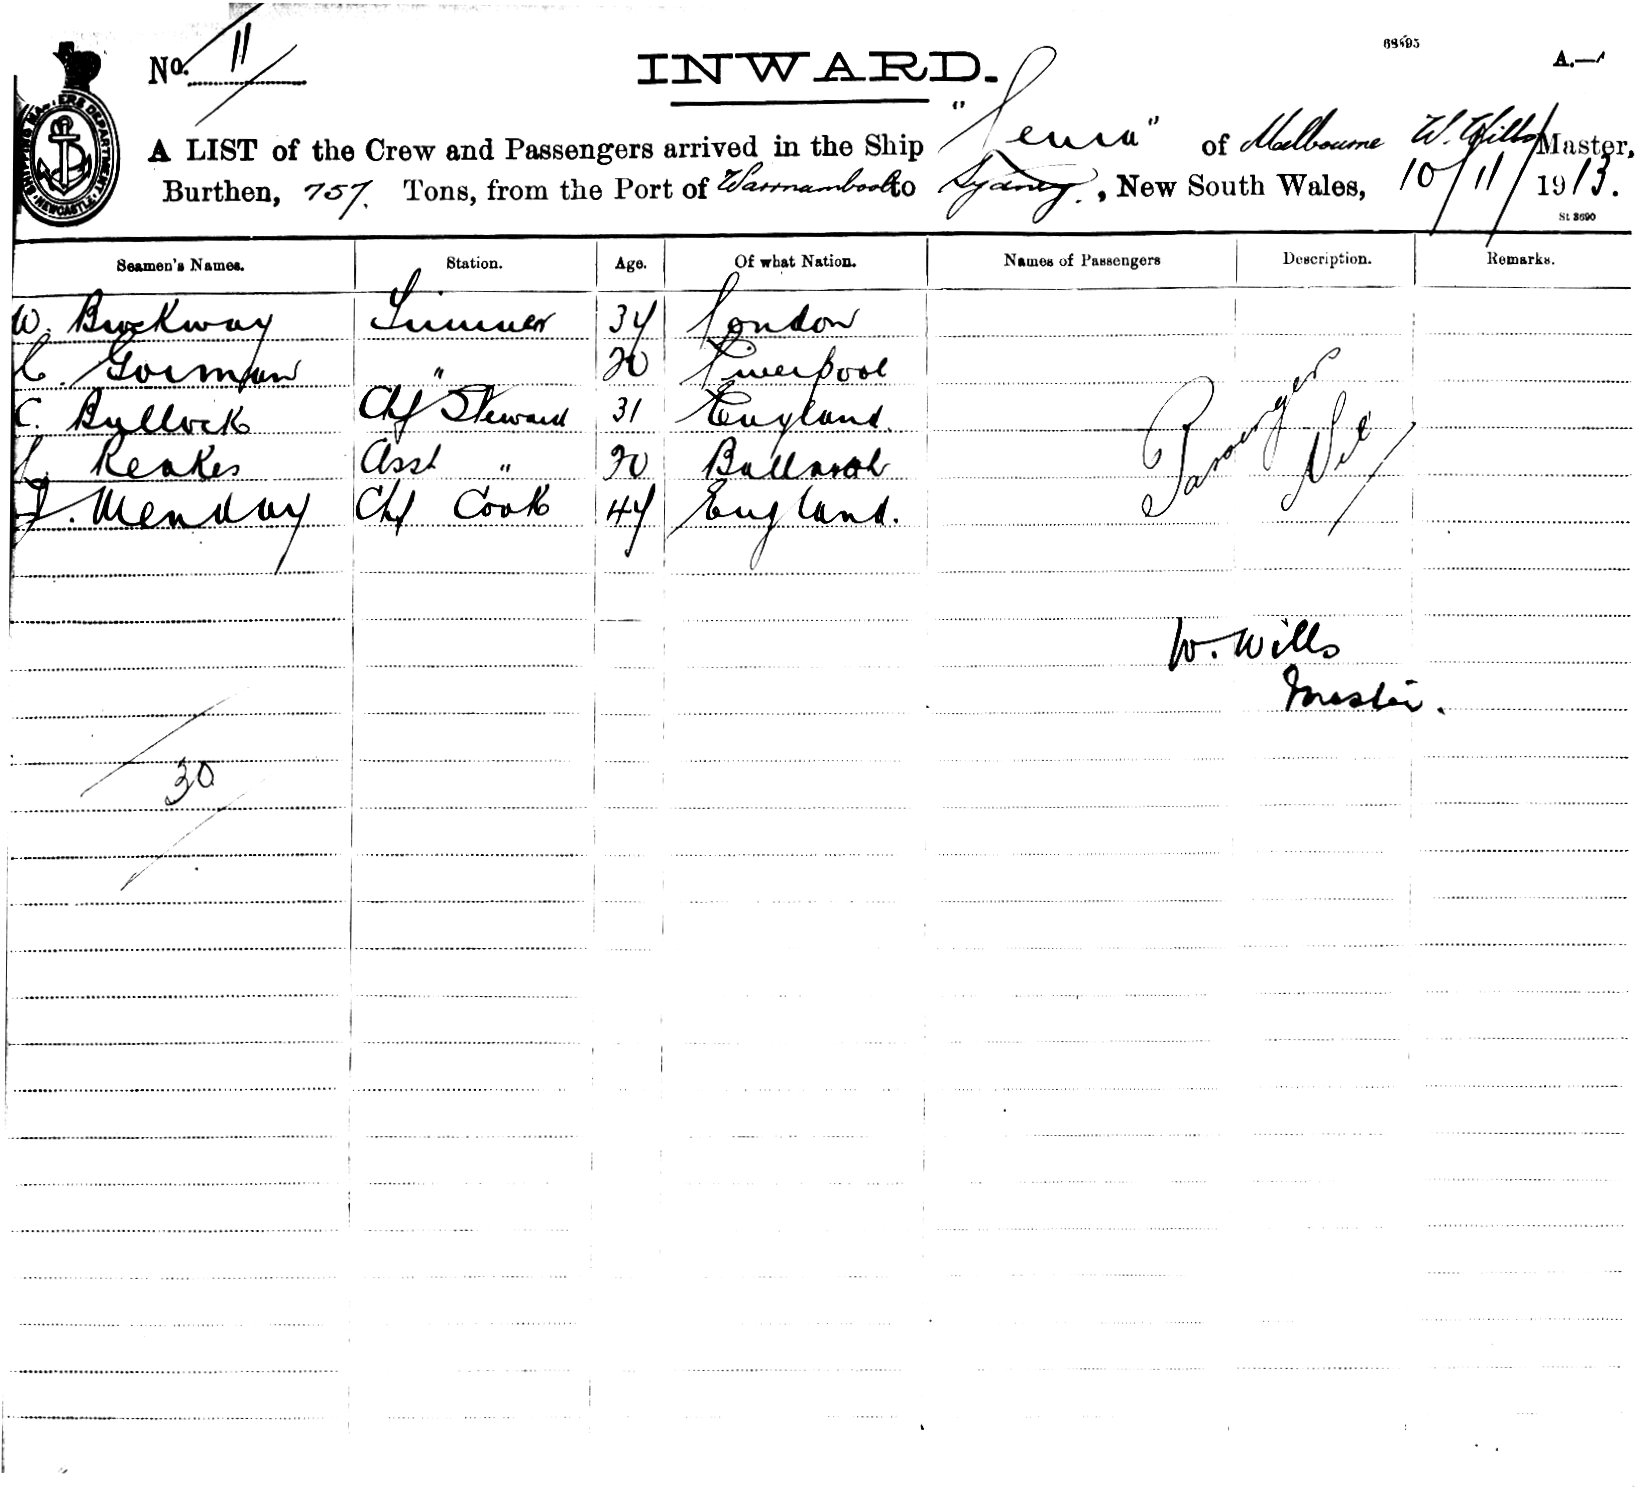 No. 11
INWARD.
68495
A.—
A LIST of the Crew and Passengers arrived in the Ship " " of Melbourne W. Wills Master,
Burthen, 757 Tons, from the Port of Warrnambool to Sydney, New South Wales, 10/11/1913.
St 3690
SHIPPING MASTERS DEPARTMENT. NEWCASTLE.
Seamen's Names. Station. Age. Of what Nation. Names of Passengers Description. Remarks.
W. Brockway Trimmer 34 London
C. Gorman " 20 Liverpool
C. Bullock Chf Steward 31 England.
Reakes Asst " 20 Ballarat
Menday Chf Cook 44 England.
Passenger Nil
W. Wills
Master.
30